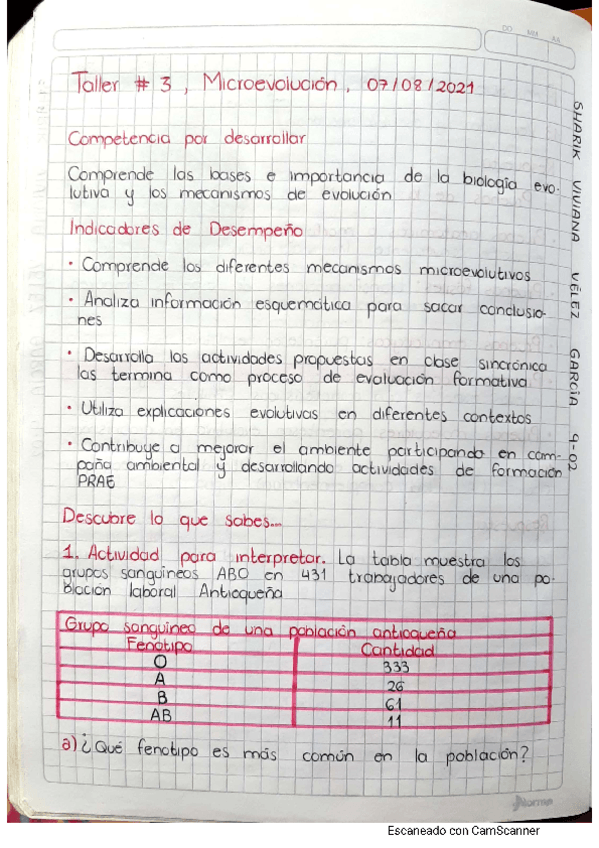 DD MM AA
Taller # 3, Microevolución, 07/08/2021
Competencia por desarrollar
Comprende las bases e importancia de la biología evo-
lutiva y los mecanismos de evolución
Indicadores de Desempeño
• Comprende los diferentes mecanismos microevolutivos
• Analiza información esquemática para sacar conclusio-
nes
• Desarrolla las actividades propuestas en clase sincrónica
las termina como proceso de evaluación formativa
• Utiliza explicaciones evolutivas en diferentes contextos
• Contribuye a mejorar el ambiente participando en cam-
paña ambiental y desarrollando actividades de formación
PRAE
Descubre lo que sabes...
1. Actividad para interpretar. La tabla muestra los
grupos sanguíneos ABO en 431 trabajadores de una po-
blación laboral Antioqueña
Grupo sanguíneo de una población antioqueña
Fenotipo Cantidad
O 333
A 26
B 61
AB 11
a) ¿Qué fenotipo es más común en la población?
SHARIK VIVIANA VÉLEZ GARCÍA 9-02
Norma
Escaneado con CamScanner